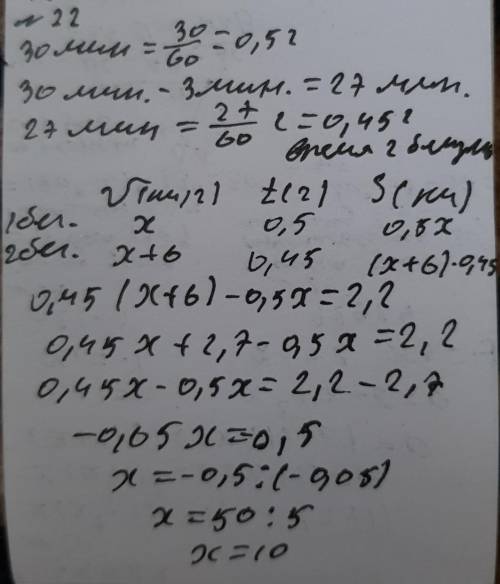 № 22
30 мин = 30/60 = 0,5 г
30 мин. - 3 мин. = 27 мин.
27 мин = 27/60 г = 0,45 г
время 2 бегуна
V(км/г) t(г) S(км)
1 бег. x 0,5 0,5x
2 бег. x+6 0,45 (x+6)·0,45
0,45 (x+6) - 0,5x = 2,2
0,45x + 2,7 - 0,5x = 2,2
0,45x - 0,5x = 2,2 - 2,7
-0,05x = 0,5
x = -0,5 : (-0,05)
x = 50 : 5
x = 10